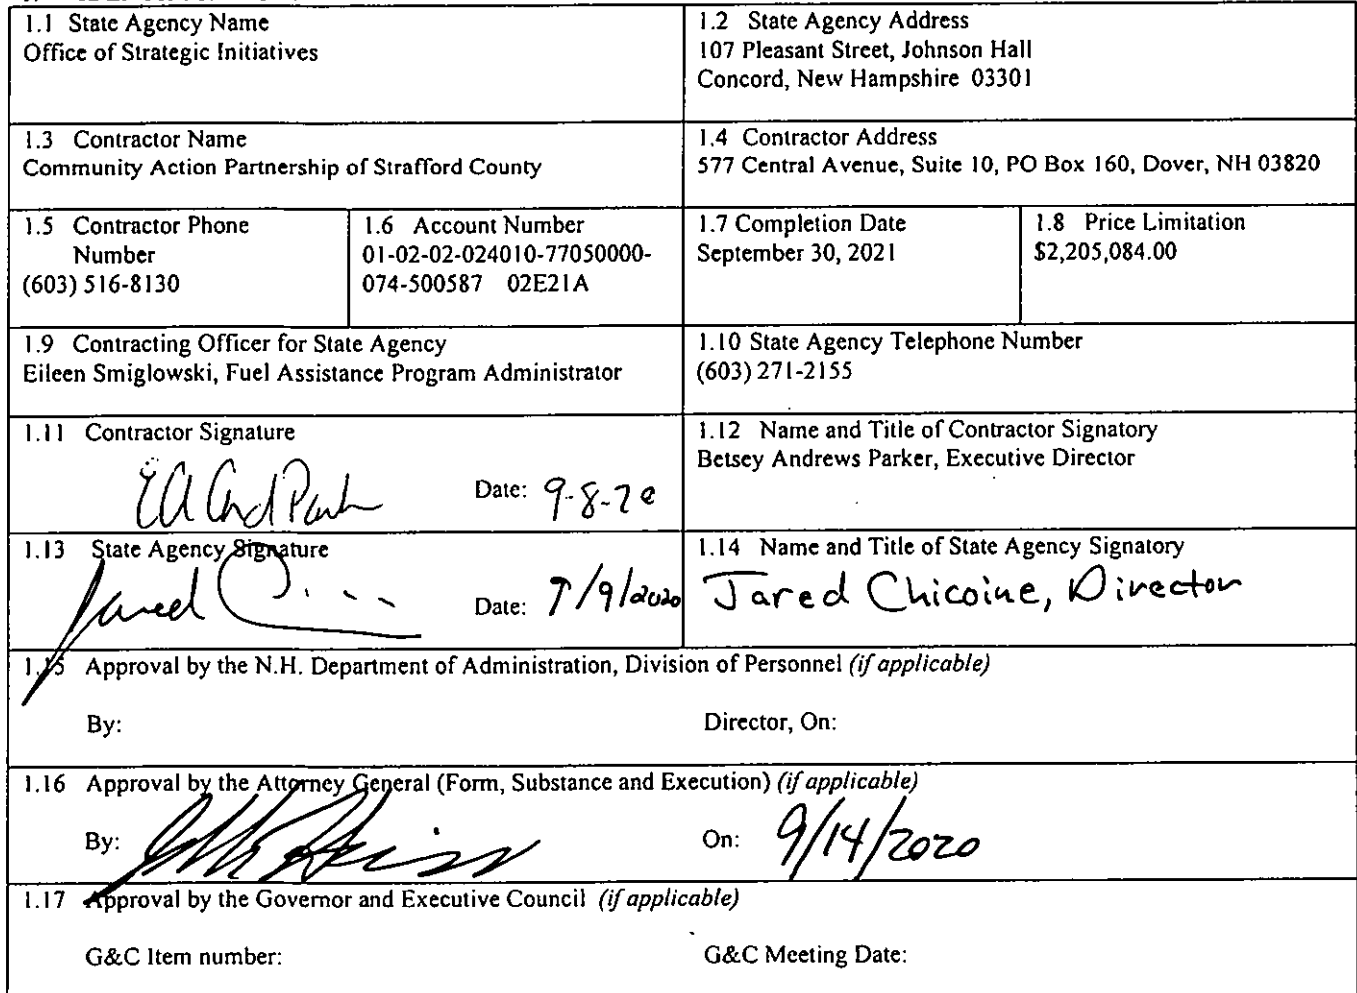 1.1 State Agency Name
Office of Strategic Initiatives
1.2 State Agency Address
107 Pleasant Street, Johnson Hall
Concord, New Hampshire 03301
1.3 Contractor Name
Community Action Partnership of Strafford County
1.4 Contractor Address
577 Central Avenue, Suite 10, PO Box 160, Dover, NH 03820
1.5 Contractor Phone
Number
(603) 516-8130
1.6 Account Number
01-02-02-024010-77050000-
074-500587 02E21A
1.7 Completion Date
September 30, 2021
1.8 Price Limitation
$2,205,084.00
1.9 Contracting Officer for State Agency
Eileen Smiglowski, Fuel Assistance Program Administrator
1.10 State Agency Telephone Number
(603) 271-2155
1.11 Contractor Signature
Date: 9-8-20
1.12 Name and Title of Contractor Signatory
Betsey Andrews Parker, Executive Director
1.13 State Agency Signature
Jared
Date: 9/9/2020
1.14 Name and Title of State Agency Signatory
Jared Chicoine, Director
1.15 Approval by the N.H. Department of Administration, Division of Personnel (if applicable)
By:
Director, On:
1.16 Approval by the Attorney General (Form, Substance and Execution) (if applicable)
By:
On: 9/14/2020
1.17 Approval by the Governor and Executive Council (if applicable)
G&C Item number:
G&C Meeting Date: